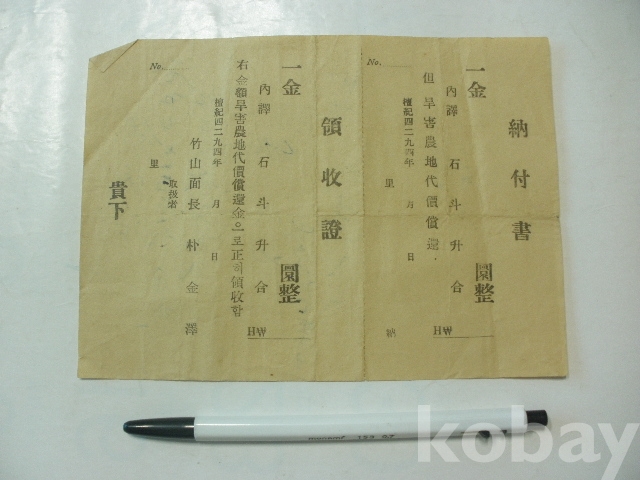 納付書
No.
一金 圜整
內譯 石斗升合 HW
但 旱害農地代價償還
檀紀四二九四年 月 日
里 納
領收證
No.
一金 圜整
內譯 石斗升合 HW
右金額旱害農地代價償還金으로正히領收함
檀紀四二九四年 月 日
竹山面長 朴金澤
里 取扱者
貴下
kobay